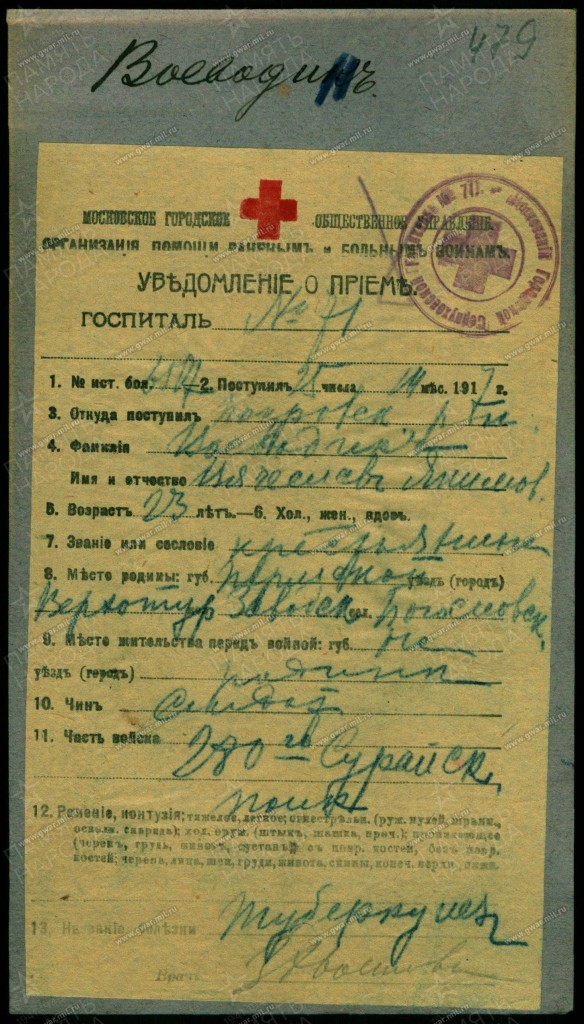 479
Воеводинъ.
МОСКОВСКОЕ ГОРОДСКОЕ ОБЩЕСТВЕННОЕ УПРАВЛЕНІЕ.
ОРГАНИЗАЦІЯ ПОМОЩИ РАНЕНЫМЪ и БОЛЬНЫМЪ ВОИНАМЪ.
УВѢДОМЛЕНІЕ О ПРІЕМѢ.
ГОСПИТАЛЬ № 71
1. № ист. бол. 2. Поступилъ 25 числа мѣс. 1917 г.
3. Откуда поступилъ
4. Фамилія Воеводинъ
Имя и отчество Вячеславъ Якимов.
5. Возрастъ 23 лѣтъ.—6. Хол., жен., вдовъ.
7. Званіе или сословіе крестьянинъ
8. Мѣсто родины: губ. Пермской уѣздъ (городъ)
Верхотур Заводск сел. Богословск.
9. Мѣсто жительства передъ войной: губ. на
уѣздъ (городъ) родинѣ
10. Чинъ Солдат
11. Часть войска 280го Сурайск.
полк
12. Раненіе, контузія; тяжелое, легкое; огнестрѣльн. (руж. пулей, шрапн.,
осколк. снаряда); хол. оруж. (штыкъ, шашка, проч.); проникающее
(черепъ, грудь, животъ, суставъ) съ повр. костей, безъ повр.
костей: черепа, лица, шеи, груди, живота, спины, конеч. верхн., нижн.
13. Названіе болѣзни Туберкулез
Врачъ